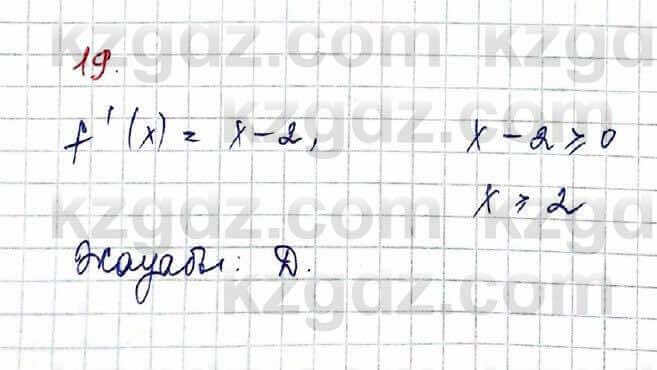 19.
f'(x) = x - 2, x - 2 ⩾ 0
x ⩾ 2
Жауабы: D.
kzgdz.com
kzgdz.com
kzgdz.com
kzgdz.com
kzgdz.com
kzgdz.com